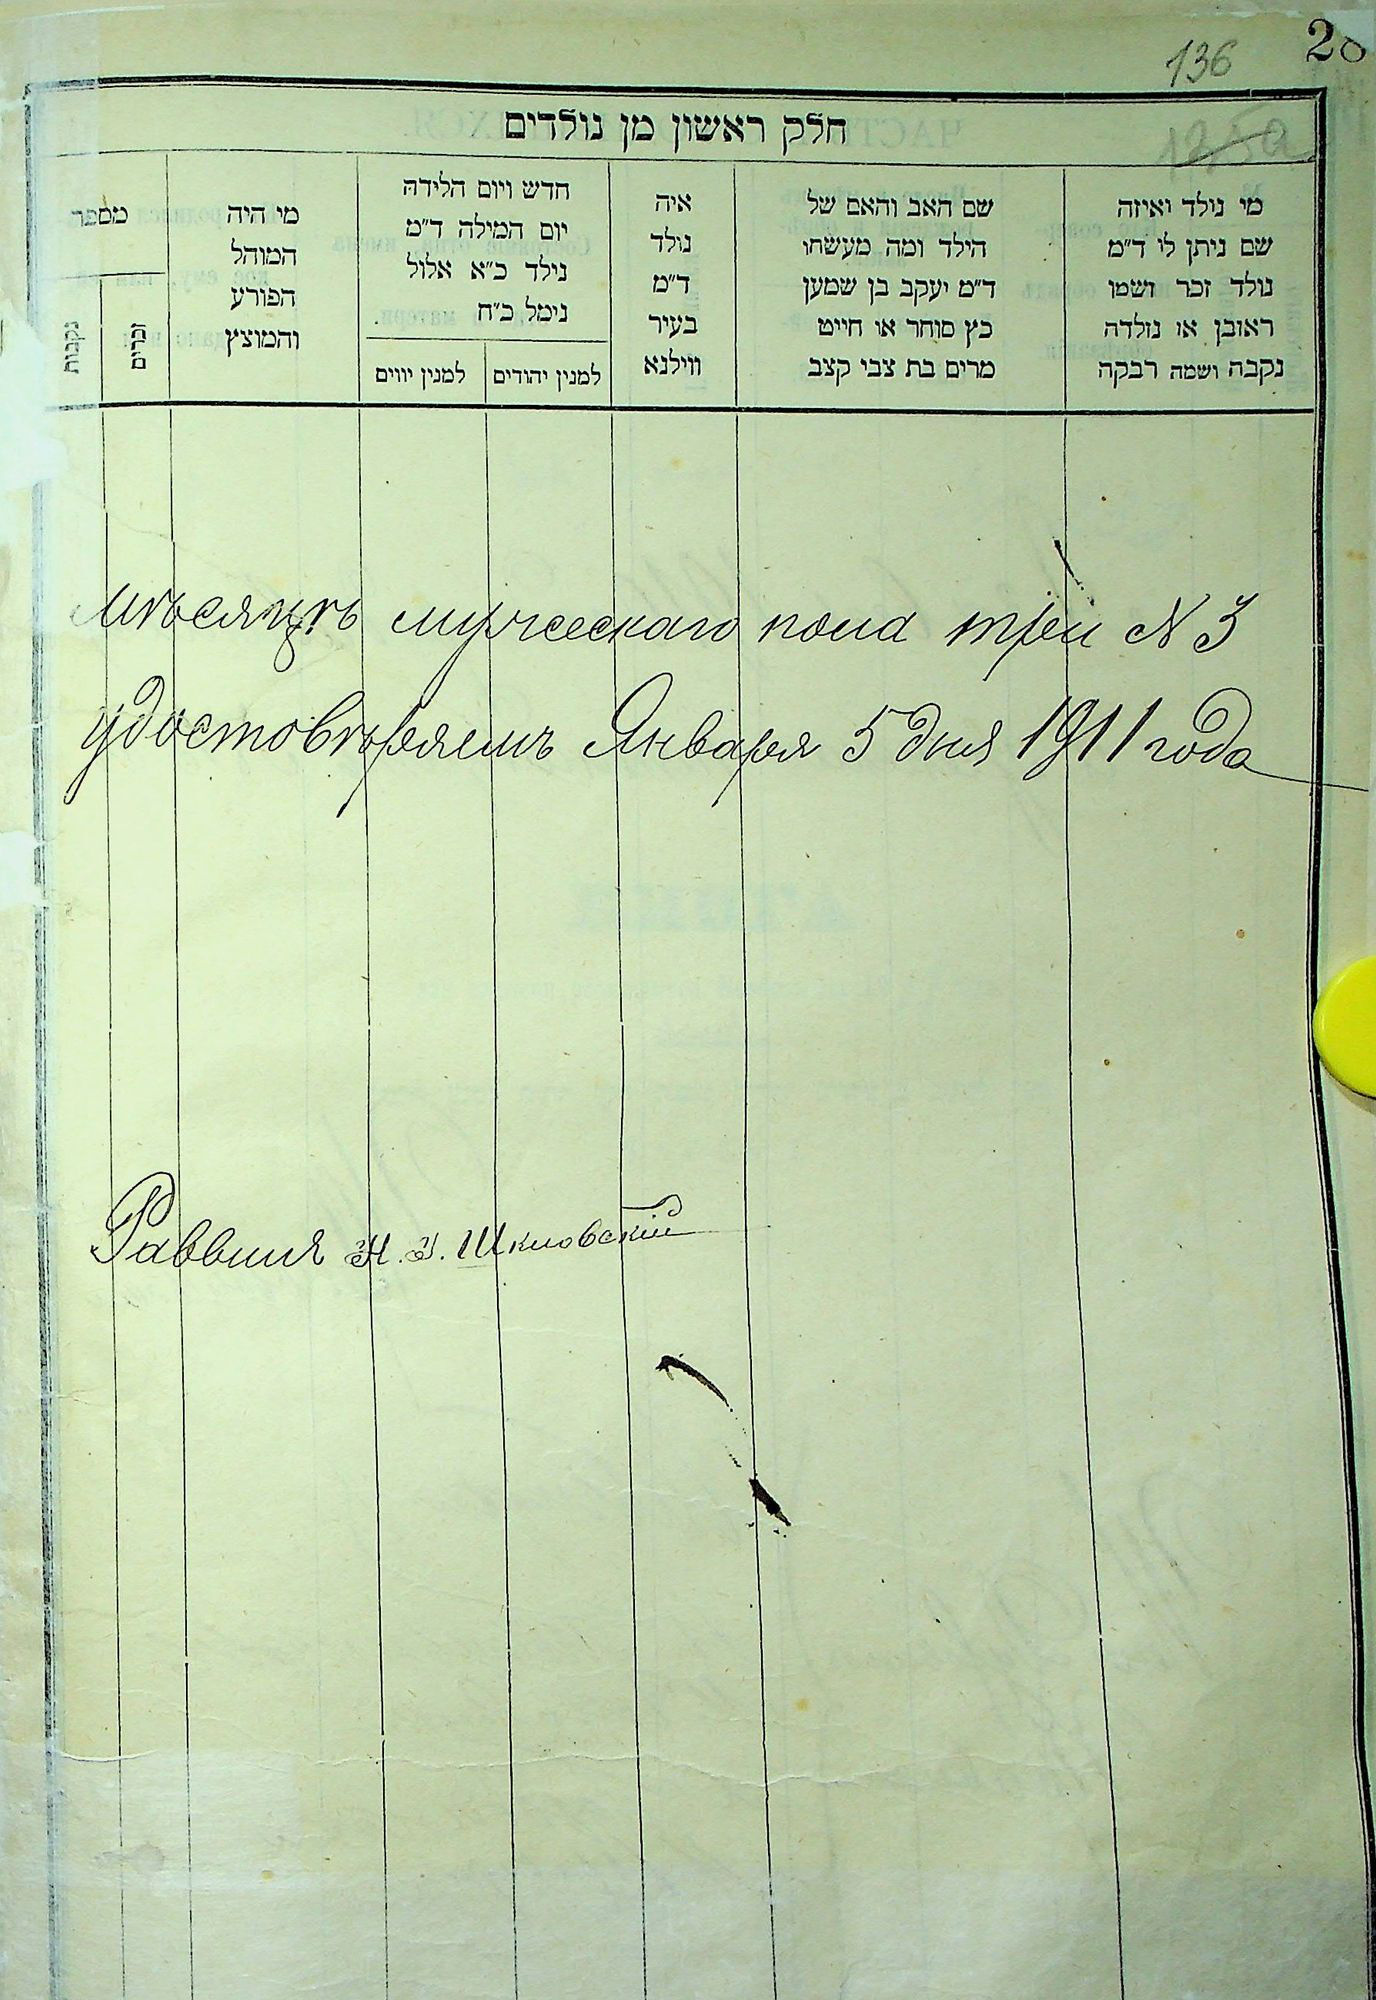 28
136
חלק ראשון מן נולדים
מי נולד ואיזה
שם ניתן לו ד״מ
נולד זכר ושמו
ראובן או נולדה
נקבה ושמה רבקה
שם האב והאם של
הילד ומה מעשהו
ד״מ יעקב בן שמען
כץ סוחר או חייט
מרים בת צבי קצב
איה
נולד
ד״מ
בעיר
ווילנא
חדש ויום הלידה
יום המילה ד״מ
נילד כ״א אלול
נימל כ״ח
למנין יהודים
למנין יווים
מי היה
המוהל
הפורע
והמוצץ
מספר
זכרים
נקבות
мѣсяцѣ мужескаго пола три N 3
удостовѣряемъ Января 5 дня 1911 года
Раввинъ Шкловскій